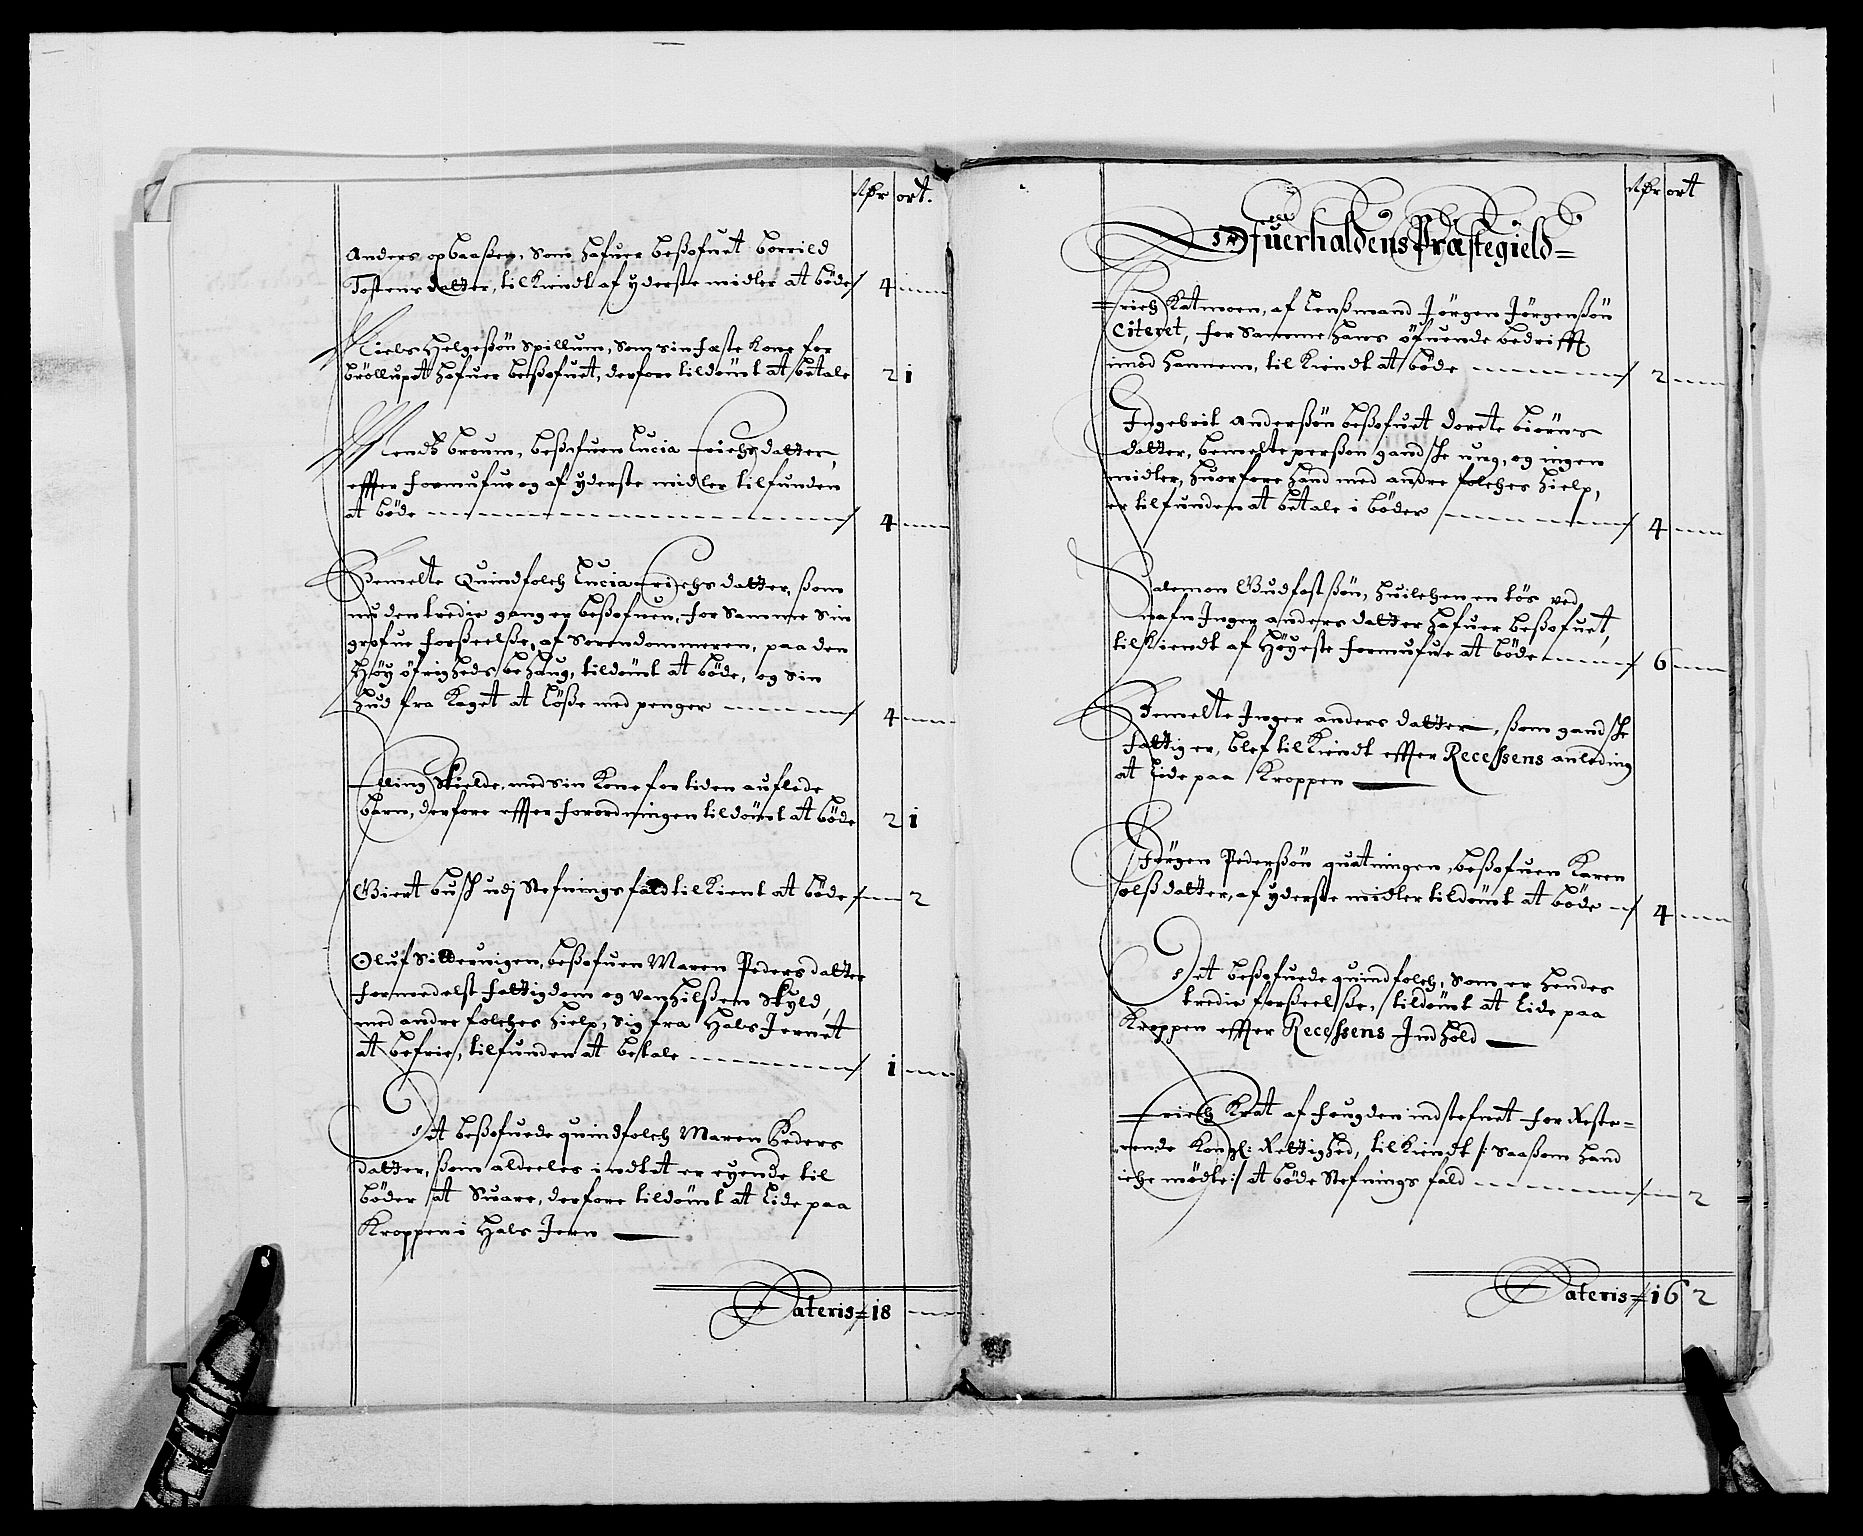 Rdr ort.
Anders opbaassen, som hafuer besofuet borrild
Tostens datter, tilkiendt af yderste midler at bøde 4
Niels Helgessøn Spillum, som sin fæste Kone for
brøllupet hafuer besofuet, derfore tildömt at betale 2 1
broum, besofuen Lucia Erichsdatter,
effter formufue og af yderste midler tilfunden
at bøde 4
Bemelte Quindfolch Lucia Erichs datter, ssom
nu den tredie gang er besofuen, for samme sin
grofue forseelsse, af Sorendommeren, paa den
Høy öfrigheds behaug, tildömt at böde, og sin
hud fra Kaget at Lösse med penger 4
Elling Skielde, med sin Kone for tiden auflede
barn, derfore effter forordningen tildömt at böde 2 1
Giert bush udj Stefnings fald tilkient at böde 2
Oluf Sillderuigen, besofuen Maren Peders datter
formedelst fattigdom og vanhilssen skyld,
med andre folches hielp, sig fra Hals Jernet
at befrie, tilfunden at betale 1
Det besofuede quindfolch Maren Peders
datter, ssom aldeeles intet er eyende til
bøder at Suare, derfore tildömt at lide paa
Kroppen i Hals Jern
Lateris 18
Rdr ort
Ofuerhaldens Præstegield
Erich Katmoen, af Lenssmand Jörgen Jörgenssön
Citeret, for Samme hans öfuende bedrifft
imod hannem, tilkiendt at böde 2
Ingebrit Anderssön besofuet dorete biörns
datter, bemelte persson gandske ung, og ingen
midler, huorfore hand med andre folches hielp,
er tilfunden at betale i böder 4
Salemon Gudfastssön, huilchen en tös ved
nafn Inger anders datter hafuer besofuet,
tilkiendt af Höyeste formufue at böde 6
Bemelte Inger anders datter, ssom gandske
fattig er, blef tilkiendt effter Recessens anleding
at lide paa Kroppen
Jörgen Pederssön quatningen, besofuen Karen
olss datter, af yderste midler tildömt at böde 4
Det besofuede quindfolch, som er hendes
tredie forseelsse, tildömt at lide paa
Kroppen effter Recessens Indhold
Erich Krat af fougden indstefnet for Reste=
rende Kongl: Rettighed, tilkiendt /: saassom hand
iche mødte :/ at böde Stefnings fald 2
Lateris 16 2